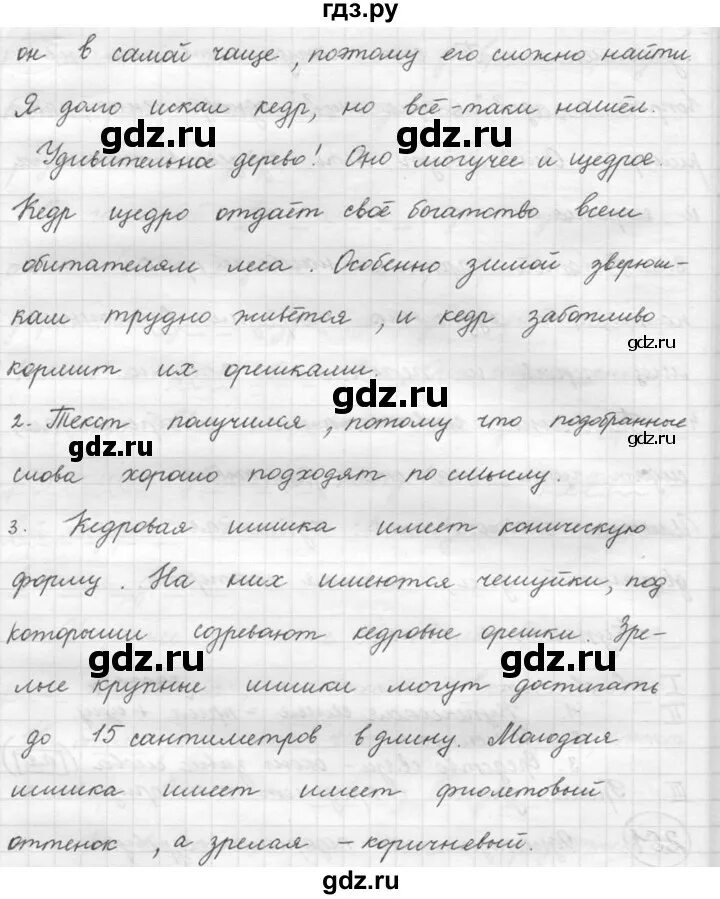 гдз.ру
он в самой чаще, поэтому его сложно найти.
Я долго искал кедр, но всё-таки нашёл.
gdz.ru gdz.ru
Удивительное дерево! Оно могучее и щедрое.
Кедр щедро отдаёт своё богатство всем
обитателям леса. Особенно зимой зверюш-
кам трудно живётся, и кедр заботливо
gdz.ru
кормит их орешками.
gdz.ru
2. Текст получился, потому что подобранные
gdz.ru gdz.ru
слова хорошо подходят по смыслу.
3. Кедровая шишка имеет коническую
форму. На них имеются чешуйки, под
которыми созревают кедровые орешки. Зре-
gdz.ru gdz.ru
лые крупные шишки могут достигать
до 15 сантиметров в длину. Молодая
шишка имеет имеет фиолетовый
оттенок, а зрелая - коричневый.
gdz.ru